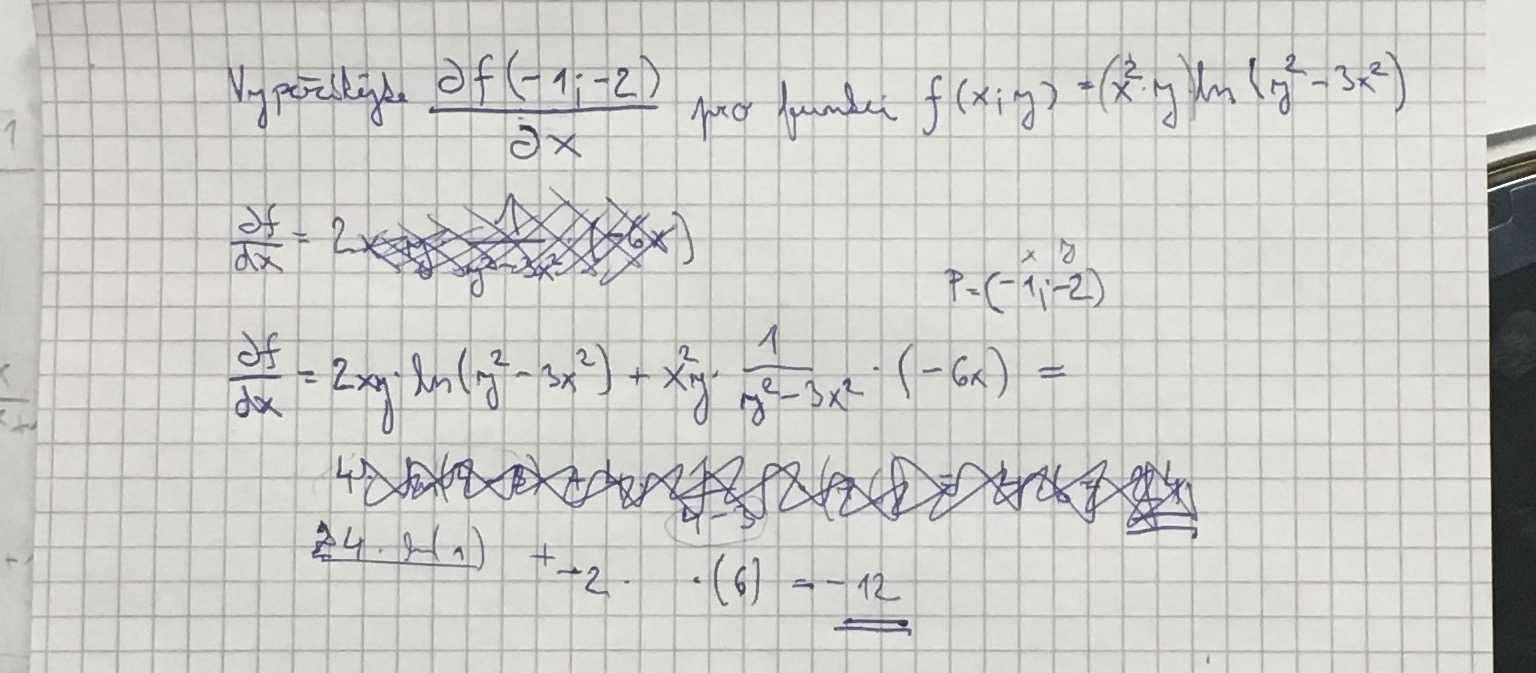 Vypočítejte ∂f(-1;-2)/∂x pro funkci f(x;y) = (x²·y)ln(y²-3x²)
∂f/∂x = 2
x y
P=(-1;-2)
∂f/∂x = 2xy·ln(y²-3x²) + x²y·1/(y²-3x²)·(-6x) =
4·ln(1) + -2· ·(6) = -12